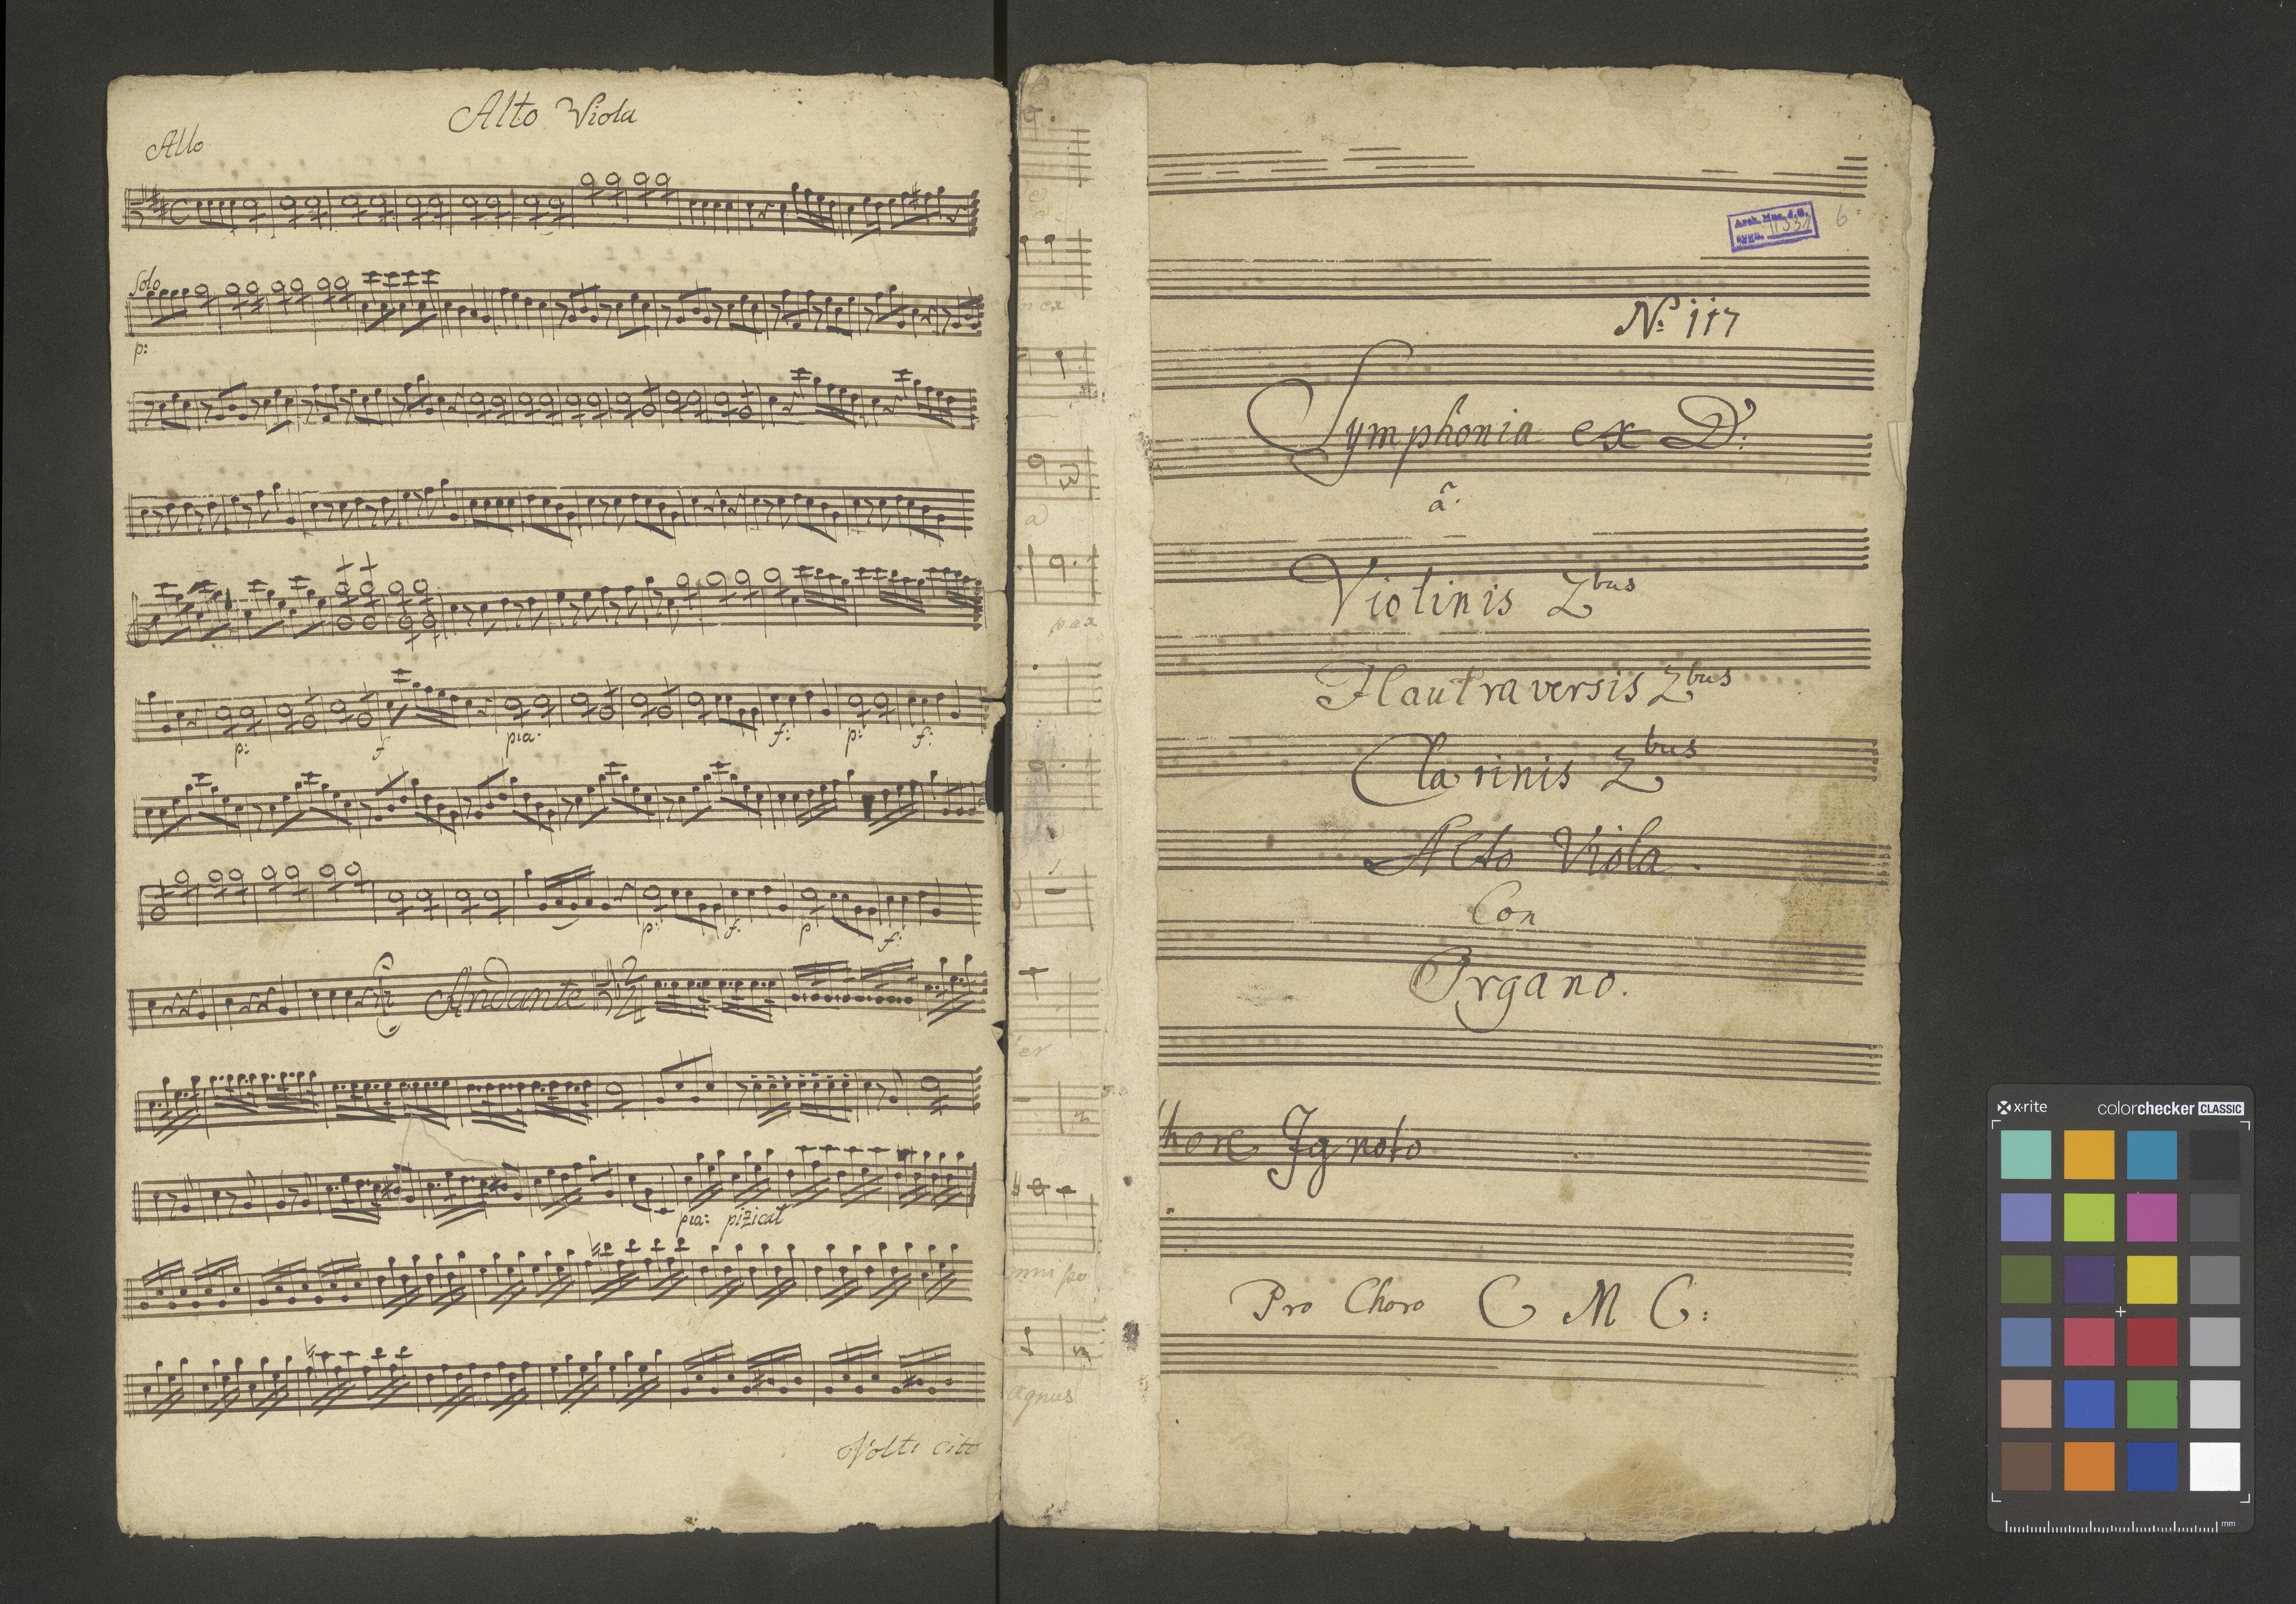 Alto Viola
Allo
Solo
p:
p: f pia. f: p: f:
p: f: p f:
Andante
pia: pizicat
Volti cito
in ex
a
pax
er
agnus
6
N: 117
Symphonia ex D:
a
Violinis 2bus
Flautraversis 2bus
Clarinis 2bus
Alto Viola.
Con
Organo.
hore Ignoto
Pro Choro C M C:
x-rite colorchecker CLASSIC
mm